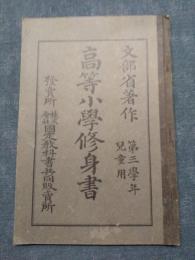 文部省著作
第三學年
兒童用
高等小學修身書
發賣所
株式會社
國定教科書共同販賣所